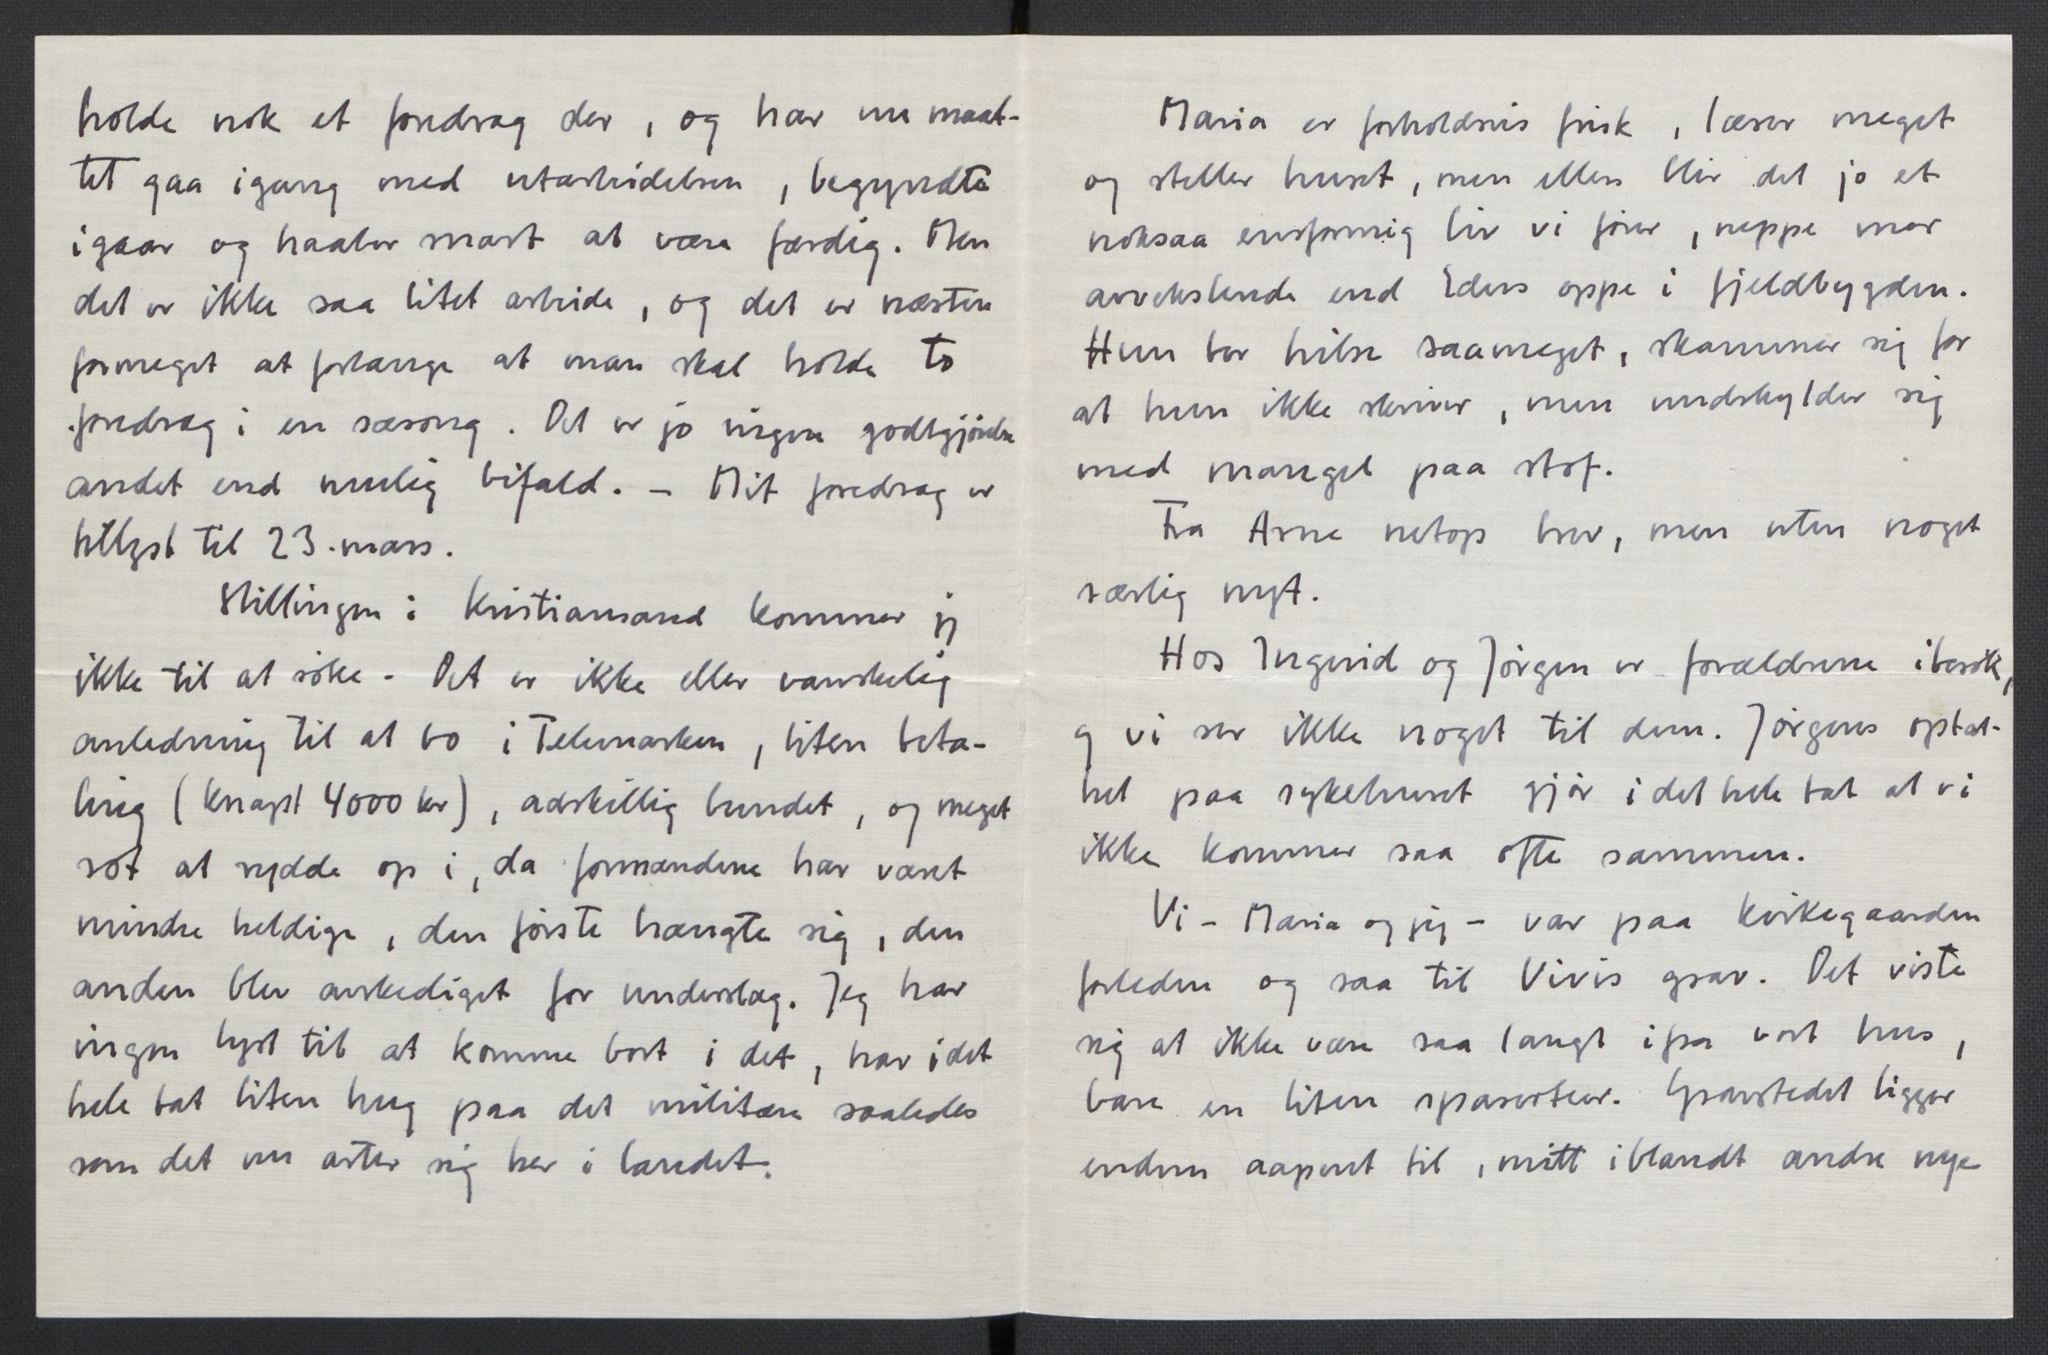 holde nok et foredrag der, og har nu maat-
tet gaa igang med utarbeidelsen, begyndte
igaar og haaber snart at være færdig. Men
det er ikke saa litet arbeide, og det er næsten
formeget at forlange at man skal holde to
foredrag i en sæsong. Det er jo ingen godtgjørelse
andet end mulig bifald. – Mit foredrag er
tillyst til 23. mars.
Stillingen i Kristiansand kommer jeg
ikke til at söke. Det er ikke eller vanskelig
anledning til at bo i Telemarken, liten beta-
ling (knapt 4000 kr), adskillig bundet, og meget
rot at rydde op i, da formændene har været
mindre heldige, den förste hængte sig, den
anden blev avskediget for underslag. Jeg har
ingen lyst til at komme bort i det, har idet
hele tat liten hug paa det militære saaledes
som det nu arter sig her i landet.
Maria er forholdsvis frisk, læser meget
og steller huset, men ellers blir det jo et
noksaa ensformig liv vi fører, neppe mer
avvekslende end Eders oppe i fjeldbygden.
Hun ber hilse saameget, skammer sig for
at hun ikke skriver, men undskylder sig
med mangel paa stof.
Fra Arne netop brev, men uten noget
særlig nyt.
Hos Ingerid og Jörgen er forældrene ibesök,
og vi ser ikke noget til dem. Jörgens optat-
het paa sykehuset gjör i det hele tat at vi
ikke kommer saa ofte sammen.
Vi – Maria og jeg – var paa kirkegaarden
forleden og saa til Vivis grav. Det viste
sig at ikke være saa langt ifra vort hus,
bare en liten spasertur. Gravstedet ligger
endnu aapent til, mitt iblandt andre nye